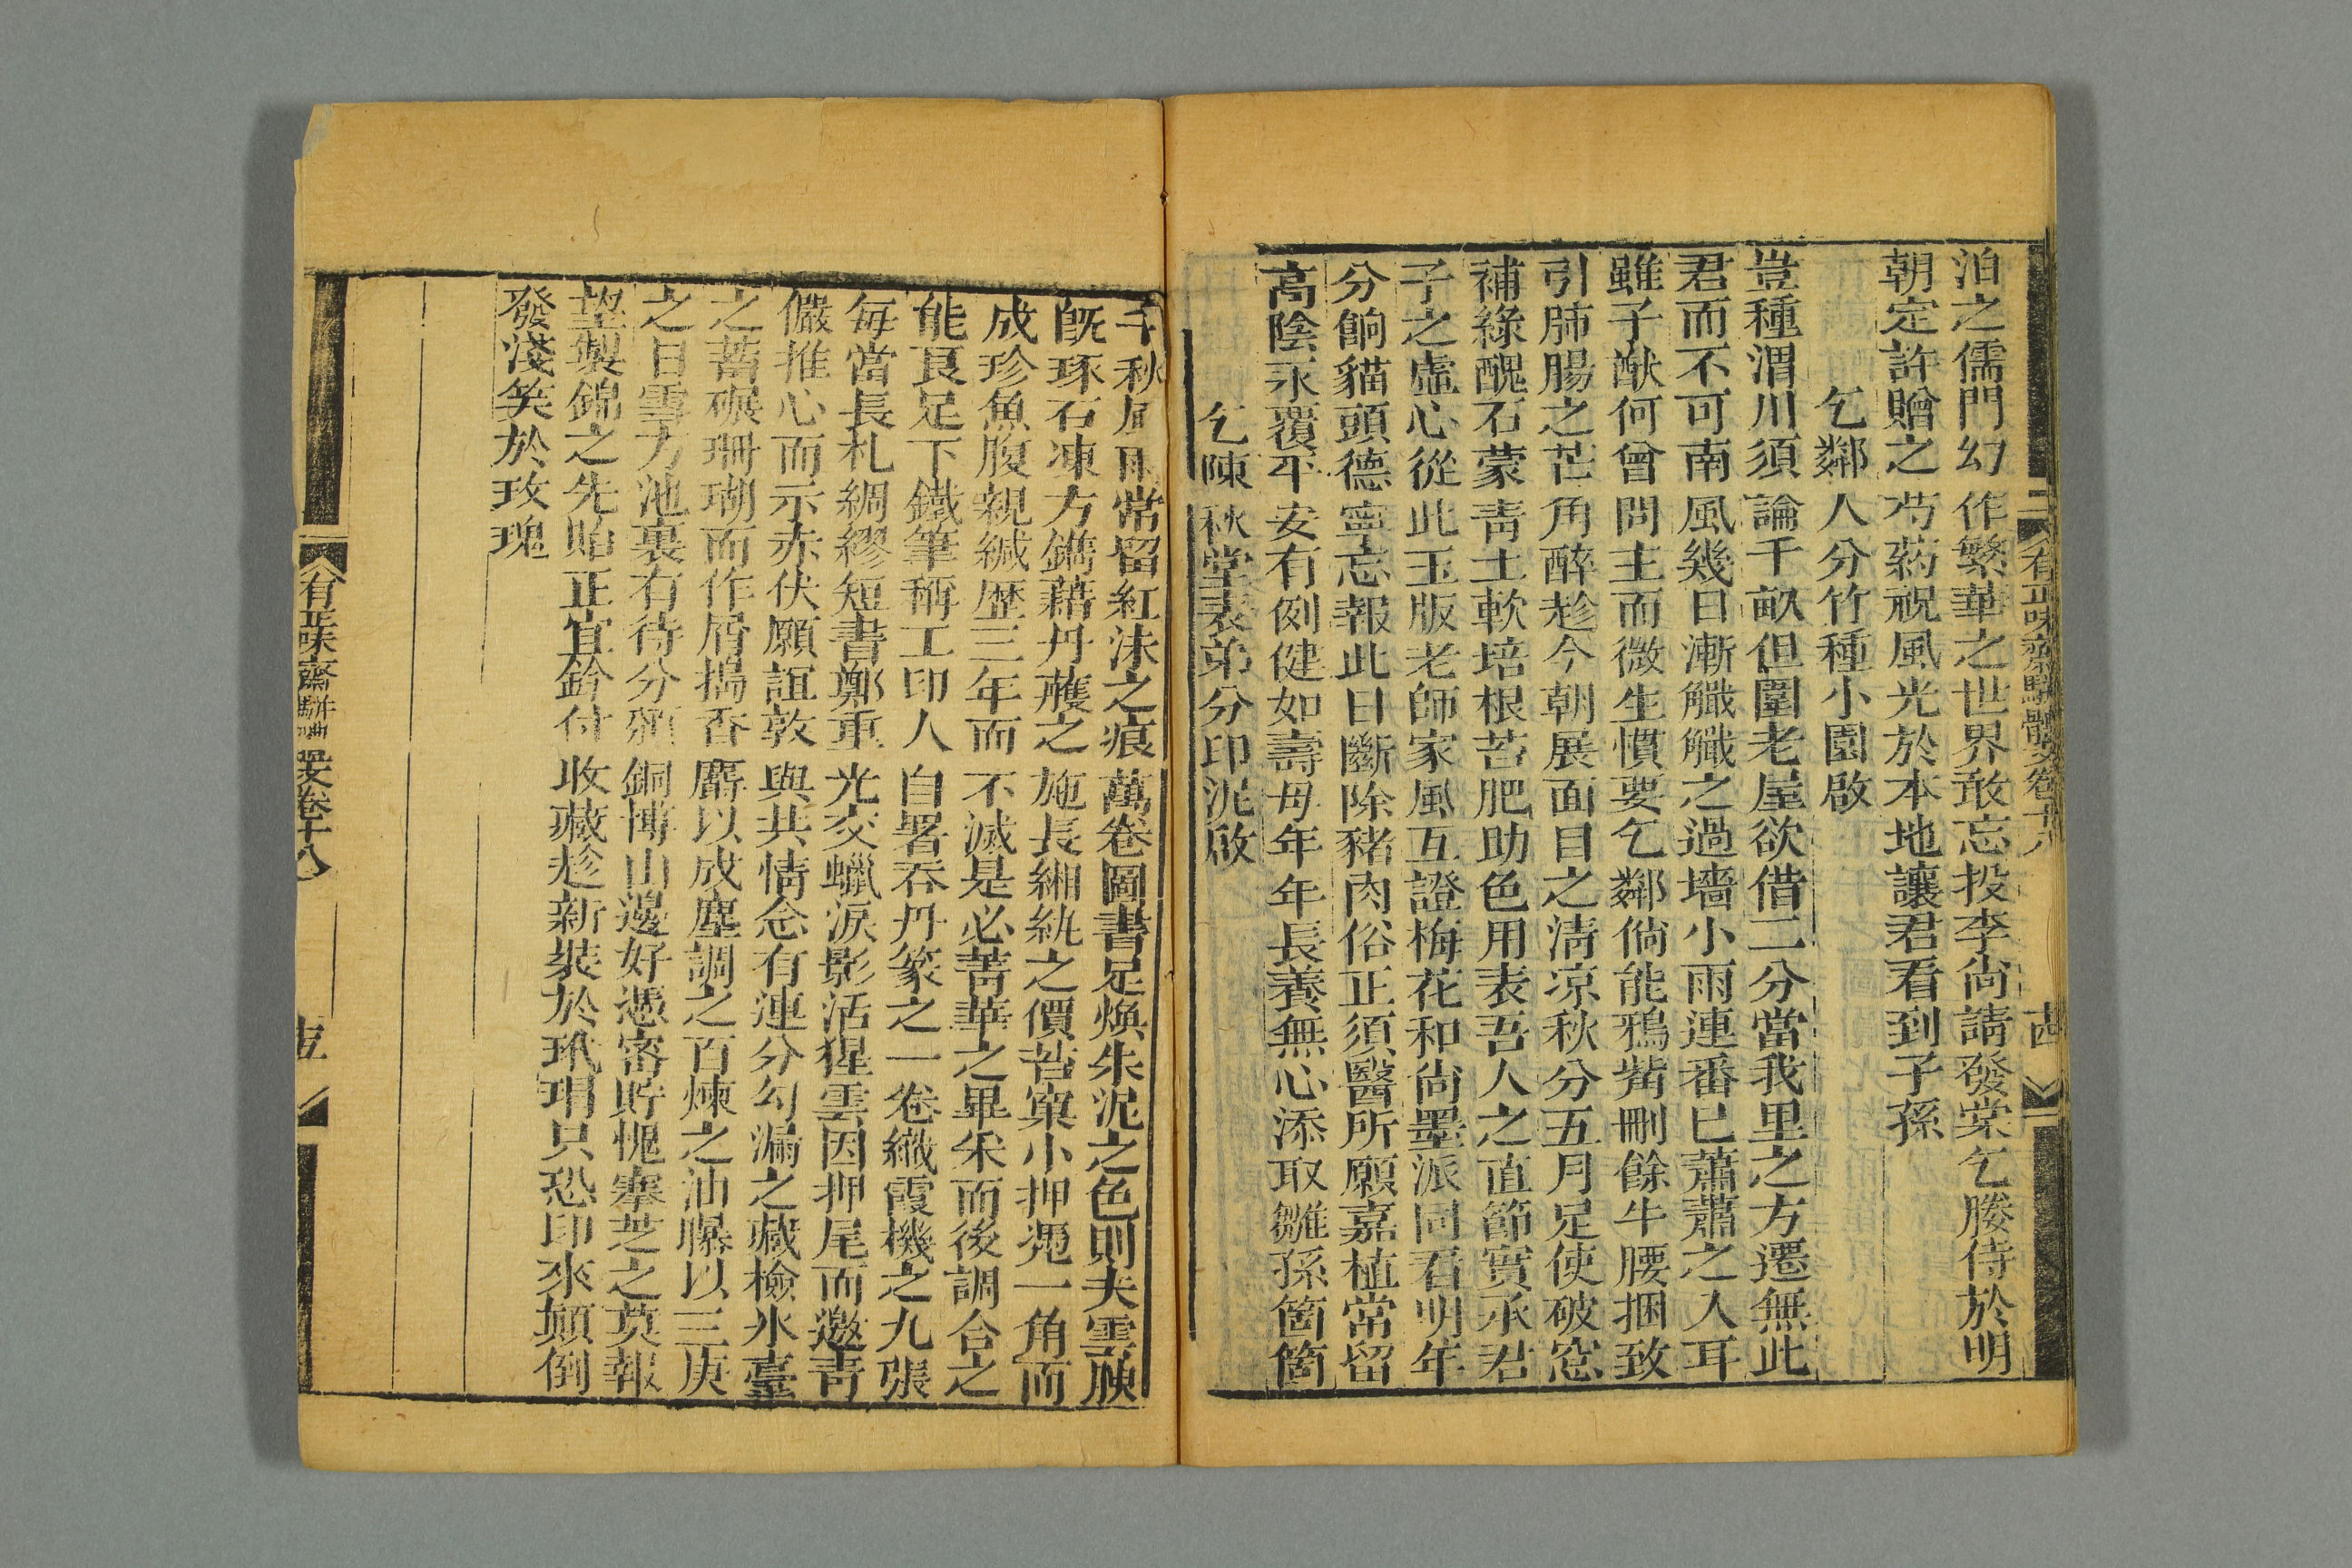 有正味齋駢體文卷十八
古
泊之儒門幻作繁華之世界敢忘投李尙請發棠乞媵侍於明
朝定許贈之芍葯祝風光於本地讓君看到子孫
乞鄰人分竹種小園啟
豈種渭川須論千畝但圍老屋欲借二分當我里之方遷無此
君而不可南風幾日漸觿觿之過墻小雨連番已蕭蕭之入耳
雖子猷何曾問主而微生慣要乞鄰倘能鴉觜刪餘牛腰捆致
引肺腸之芒角醉趁今朝展面目之淸凉秋分五月足使破窓
補綠醜石蒙靑土軟培根苔肥助色用表吾人之直節實承君
子之虛心從此玉版老師家風互證梅花和尙墨派同看明年
分餉貓頭德寧忘報此日斷除豬肉俗正須醫所願嘉植常留
高陰永覆平安有例健如壽母年年長養無心添取雛孫箇箇
乞陳秋堂表弟分印泥啟
千秋風雨常留紅沬之痕萬卷圖書足煥朱泥之色則夫雲腴
旣琢石凍方鐫藉丹雘之施長緗紈之價若窠小押兎一角而
成珍魚腹親緘歷三年而不滅是必菁華之畢采而後調合之
能良足下鐵筆稱工印人自署吞丹篆之一卷織霞機之九張
每當長札綢繆短書鄭重光交蠟淚影活猩雲因押尾而邀靑
儼推心而示赤伏願誼敦與共情念有連分勾漏之藏檢氷臺
之蓄碾珊瑚而作屑搗香麝以成塵調之百煉之油曝以三庚
之日雪方池裏右待分頒銅博山邊好憑密貯愧搴芝之莫報
望製錦之先貽正宜鈴付收藏趁新裝於玳瑁只恐印來顛倒
發淺笑於玫瑰
有正味齋駢體文卷十八